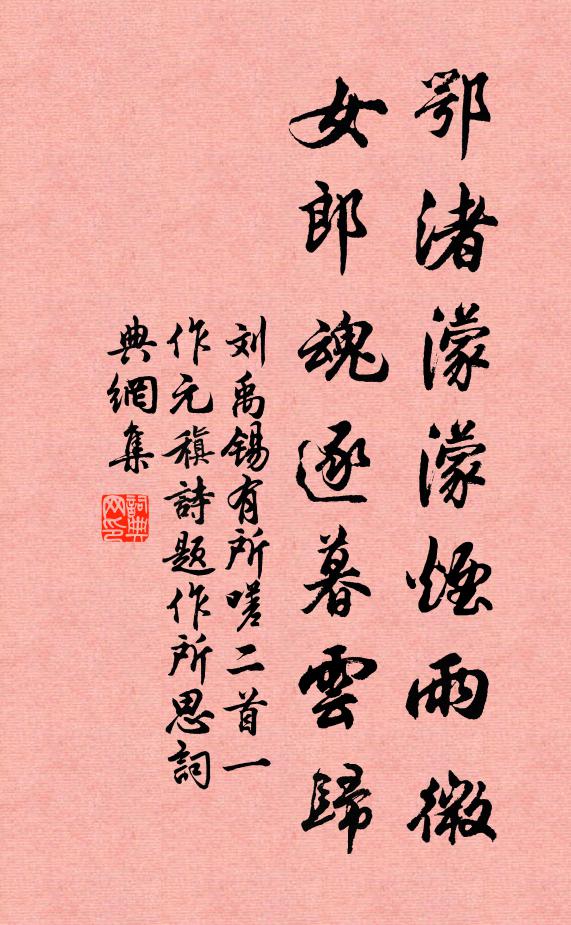 鄂渚濛濛煙雨微
女郎魂逐暮雲歸
刘禹锡有所嗟二首一
作元稹詩题作所思詞
典網集
詞典
网印